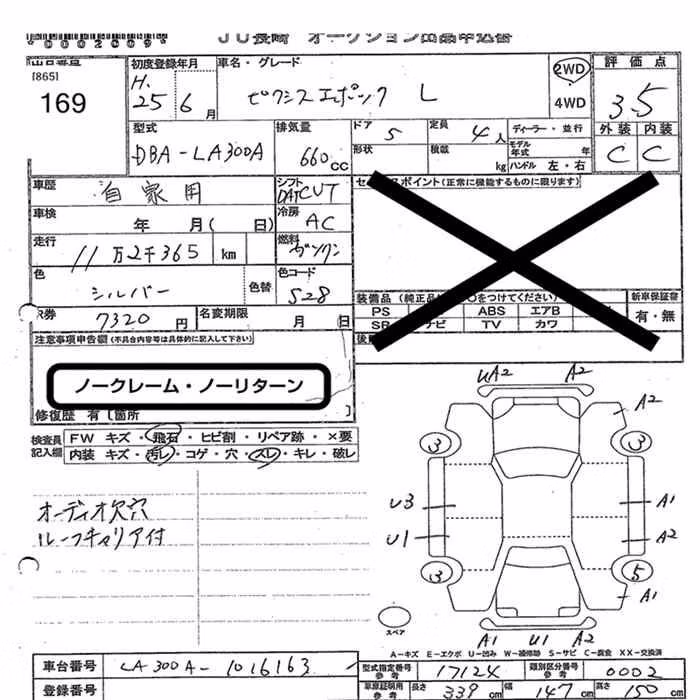 *0002009*
JU長崎 オークション出品申込書
出品番号
[865]
169
初度登録年月
H.
25年 6月
車名・グレード
ピクシスエポック L
2WD
4WD
評価点
3.5
外装 内装
C C
型式
DBA-LA300A
排気量
660cc
ドア
5
定員
4人
形状
積載
kg
ディーラー・並行
モデル年式 年
ハンドル 左・右
車歴
自家用
シフト
DAT CVT
セールスポイント(正常に機能するものに限ります)
車検
年 月( 日)
冷房
AC
走行
11万2千365 km
燃料
ガソリン
色
シルバー
色替
色コード
S28
装備品 (純正品に○をつけてください)
PS ABS エアB
SR ナビ TV カワ
新車保証書
有・無
R券
7320円
名変期限
月 日
注意事項申告欄(不具合内容等は具体的に記入して下さい)
ノークレーム・ノーリターン
修復歴 有〔箇所 〕
検査員記入欄
FW キズ・飛石・ヒビ割・リペア跡・×要
内装 キズ・汚レ・コゲ・穴・スレ・キレ・破レ
オーディオ欠穴
ルーフキャリア付
UA2 A2
A2
3 3
U3 A1
U1 A2
3 5
A1
スペア
A1 U1 A2
A-キズ E-エクボ U-凹み W-補修跡 S-サビ C-腐食 XX-交換済
車台番号
LA300A-1016163
型式指定番号 参考
17124
類別区分番号 参考
0002
登録番号
車庫証明用 参考
長さ 339cm 幅 147cm 高さ 150cm